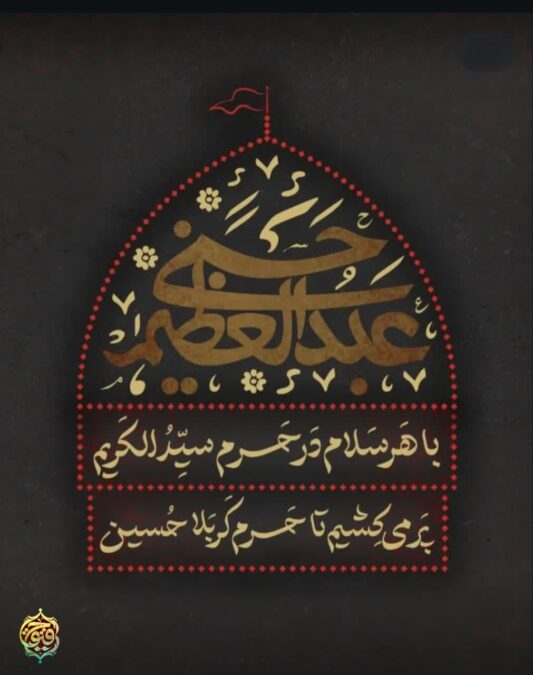 عبدالعظیم حسنی
با هَر سَلام دَر حَرم سیِّدُ الکَریم
پَر می‌کِشیم تا حَرم کَربَلا حُسین